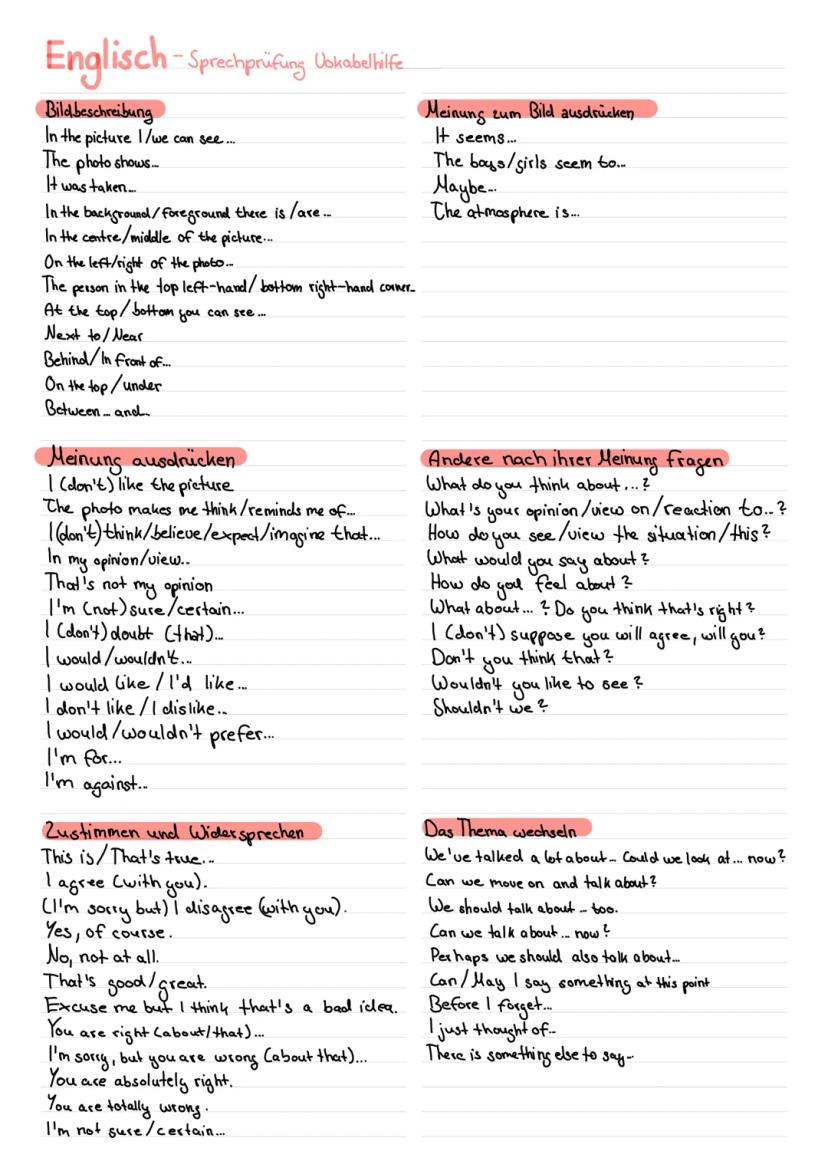 Englisch - Sprechprüfung Vokabelhilfe
Bildbeschreibung
In the picture I/we can see...
The photo shows...
It was taken...
In the background/foreground there is/are...
In the centre/middle of the picture...
On the left/right of the photo...
The person in the top left-hand/bottom right-hand corner...
At the top/bottom you can see...
Next to/Near
Behind/In front of...
On the top/under
Between... and...
Meinung zum Bild ausdrücken
It seems...
The boys/girls seem to...
Maybe...
The atmosphere is...
Meinung ausdrücken
I (don't) like the picture
The photo makes me think/reminds me of...
I (don't) think/believe/expect/imagine that...
In my opinion/view..
That's not my opinion
I'm (not) sure/certain...
I (don't) doubt (that)...
I would/wouldn't...
I would like/I'd like...
I don't like/I dislike...
I would/wouldn't prefer...
I'm for...
I'm against...
Andere nach ihrer Meinung fragen
What do you think about...?
What's your opinion/view on/reaction to..?
How do you see/view the situation/this?
What would you say about?
How do you feel about?
What about...? Do you think that's right?
I (don't) suppose you will agree, will you?
Don't you think that?
Wouldn't you like to see?
Shouldn't we?
Zustimmen und Widersprechen
This is/That's true...
I agree (with you).
(I'm sorry but) I disagree (with you).
Yes, of course.
No, not at all.
That's good/great.
Excuse me but I think that's a bad idea.
You are right (about/that)...
I'm sorry, but you are wrong (about that)...
You are absolutely right.
You are totally wrong.
I'm not sure/certain...
Das Thema wechseln
We've talked a lot about... Could we look at... now?
Can we move on and talk about?
We should talk about... too.
Can we talk about... now?
Perhaps we should also talk about...
Can/May I say something at this point
Before I forget...
I just thought of...
There is something else to say...